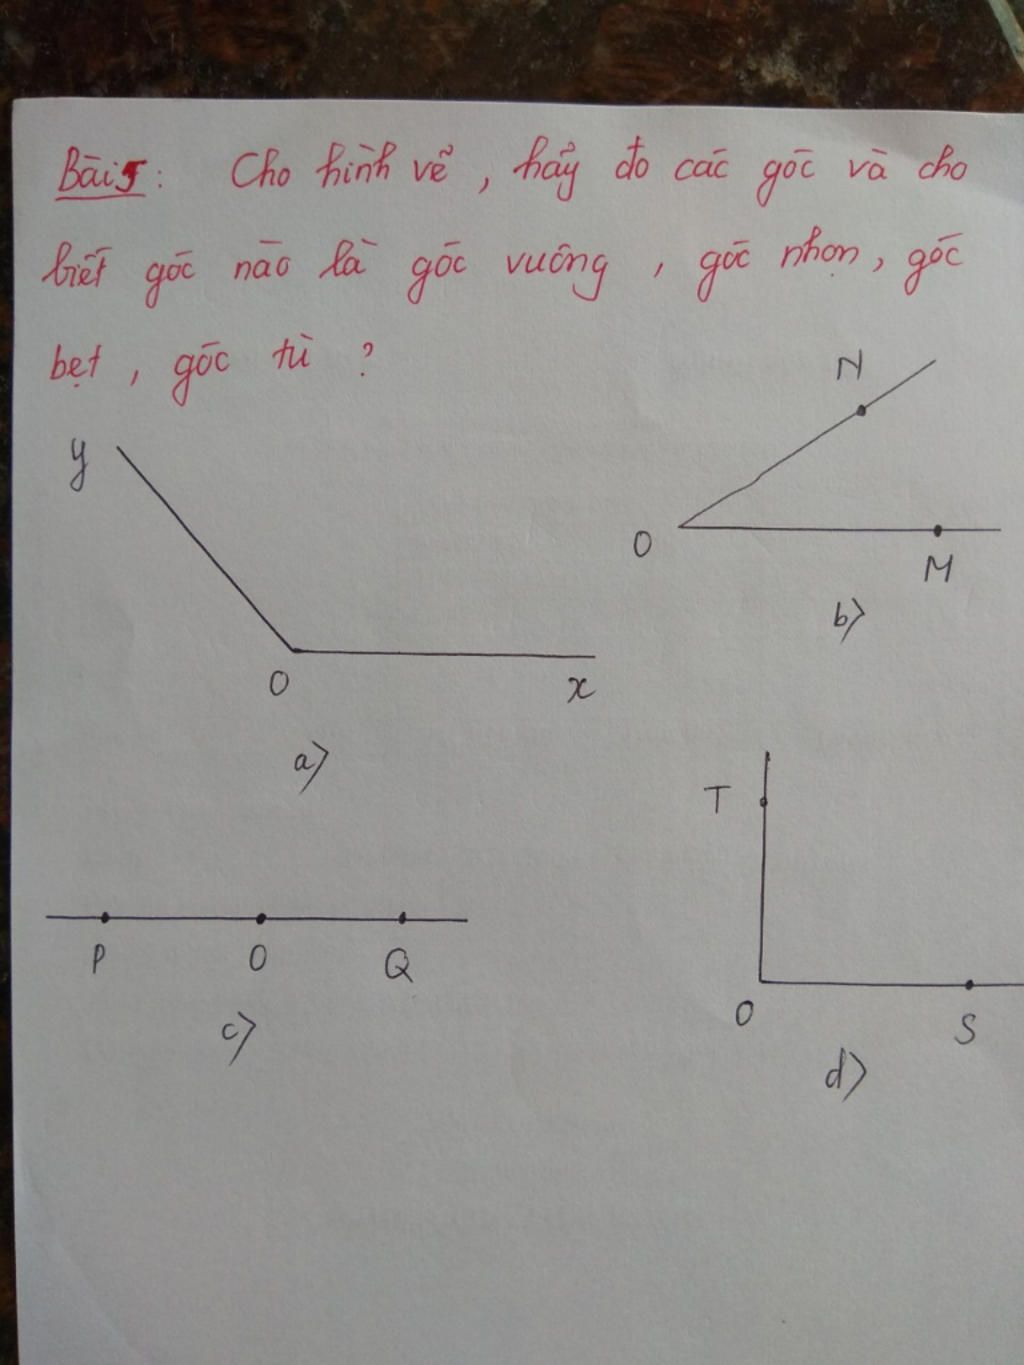 Bài 5: Cho hình vẽ, hãy đo các góc và cho
biết góc nào là góc vuông, góc nhọn, góc
bẹt, góc tù ?
N
y
O
M
b)
O
x
a)
T
P O Q
O
S
c)
d)